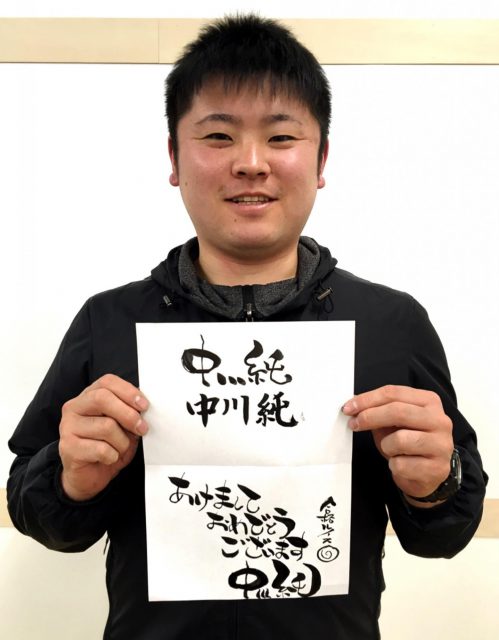 中川純
中川純
あけまして
おめでとう
ございます
中川純